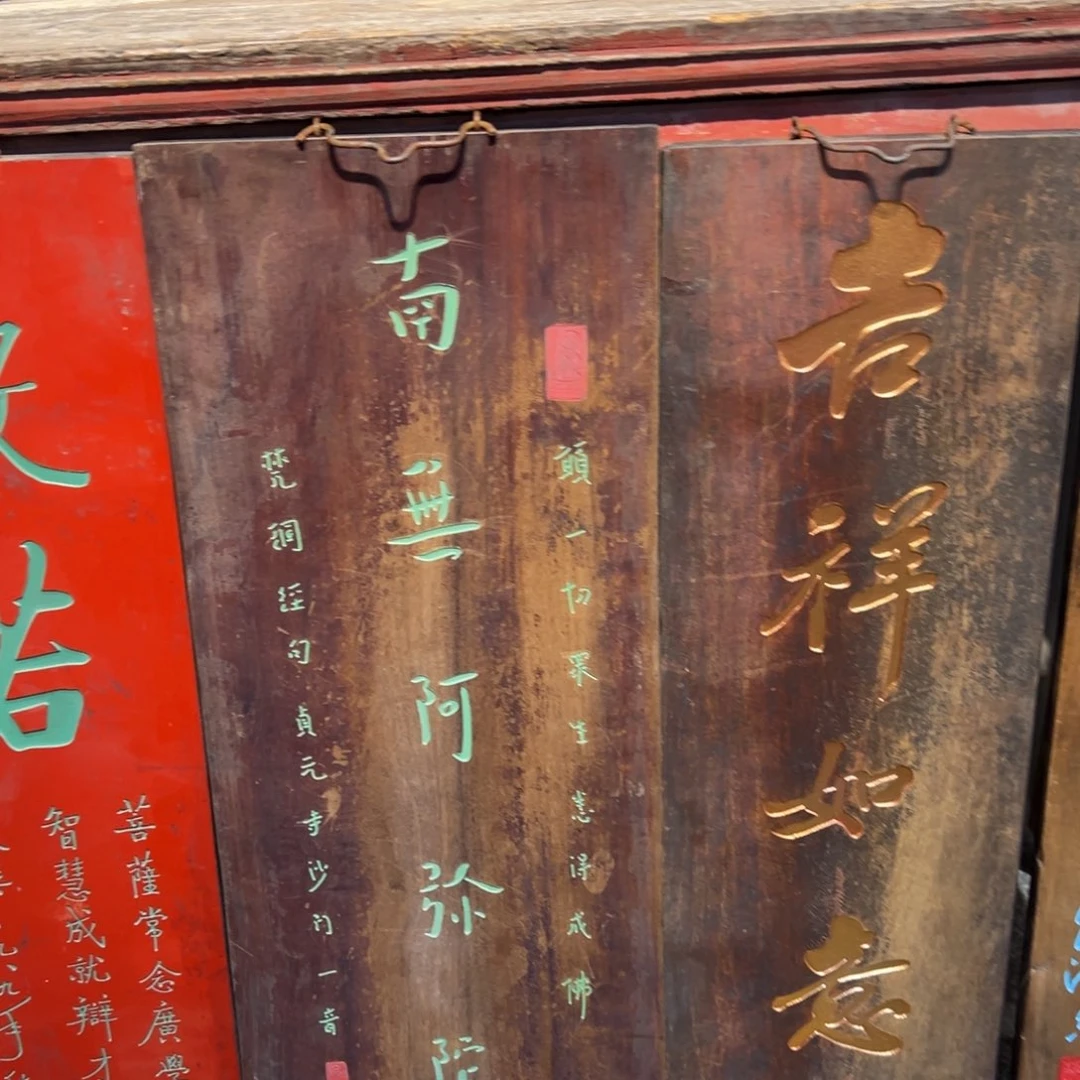 吉祥如意
願一切眾生悉得成佛
南無阿弥陀
梵網經句貞元寺沙门一音
菩薩常念廣學
智慧成就辯才